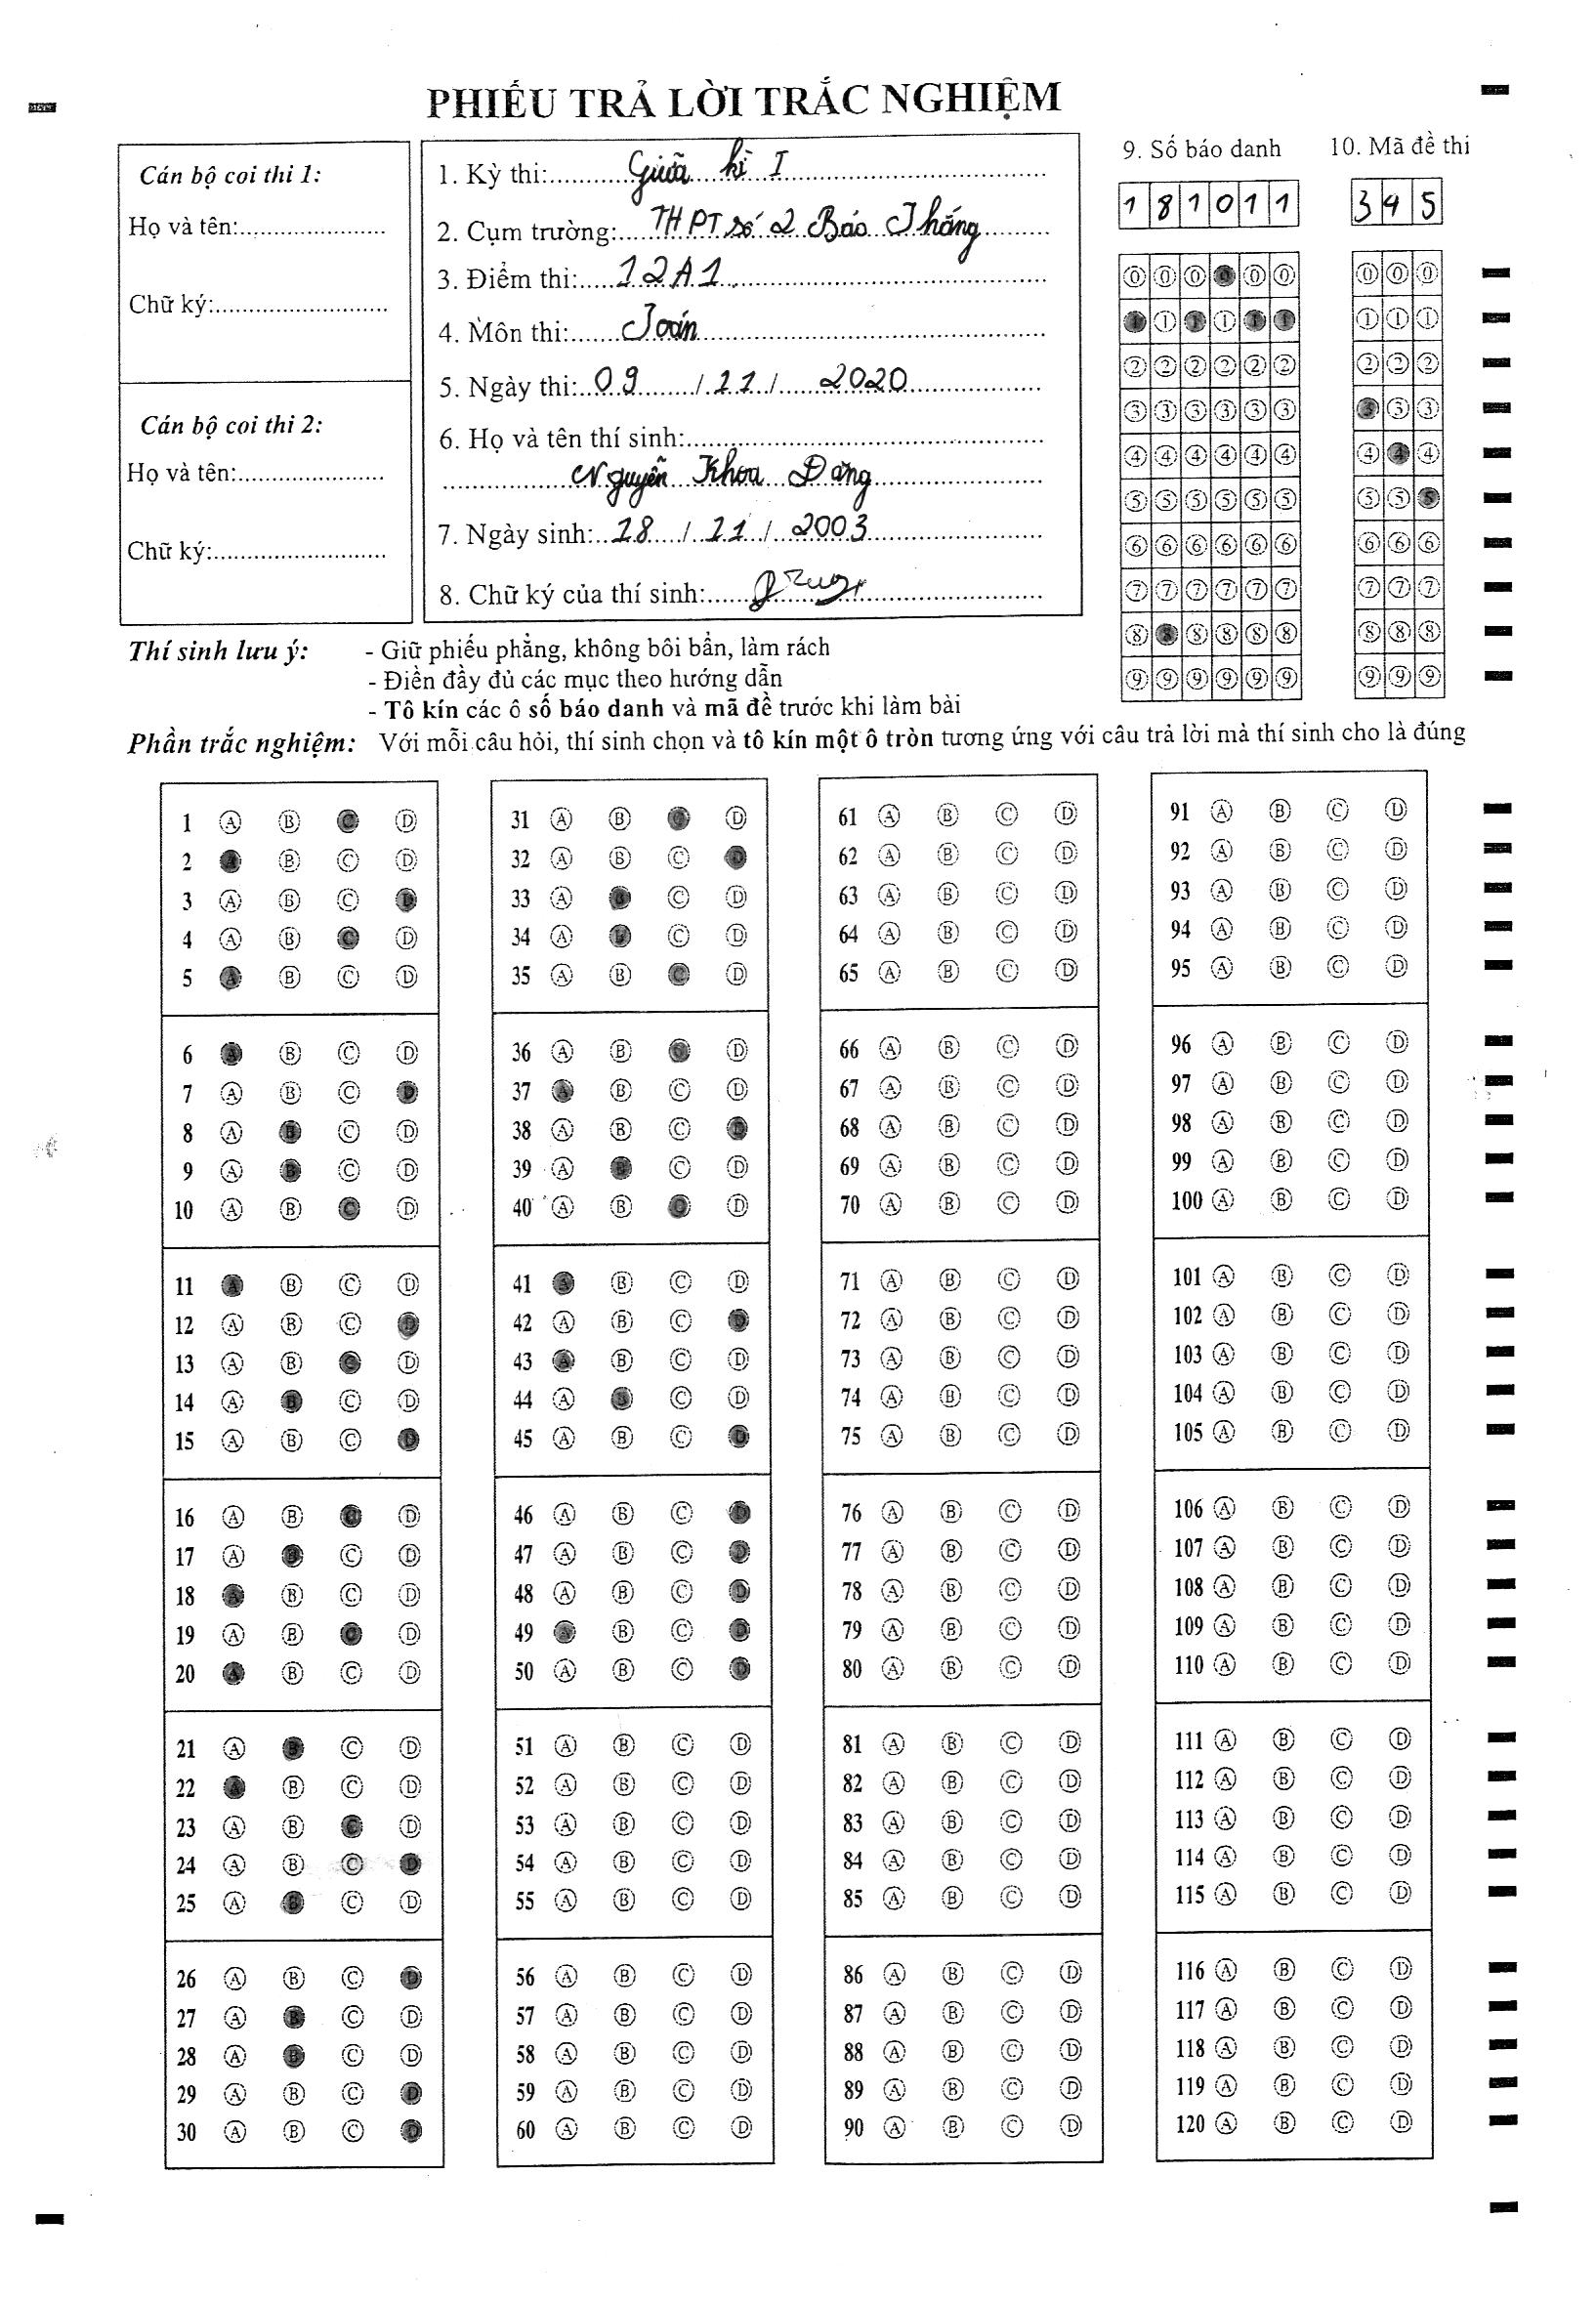 PHIẾU TRẢ LỜI TRẮC NGHIỆM
Cán bộ coi thi 1:
Họ và tên:
Chữ ký:
Cán bộ coi thi 2:
Họ và tên:
Chữ ký:
1. Kỳ thi: Giữa kì I
2. Cụm trường: THPT số 2 Bảo Thắng
3. Điểm thi: 12A1
4. Môn thi: Toán
5. Ngày thi: 09 / 11 / 2020
6. Họ và tên thí sinh:
Nguyễn Khoa Đăng
7. Ngày sinh: 18 / 11 / 2003
8. Chữ ký của thí sinh:
9. Số báo danh
1 8 1 0 1 1
0 0 0 0 0 0
1 1 1 1 1 1
2 2 2 2 2 2
3 3 3 3 3 3
4 4 4 4 4 4
5 5 5 5 5 5
6 6 6 6 6 6
7 7 7 7 7 7
8 8 8 8 8 8
9 9 9 9 9 9
10. Mã đề thi
3 4 5
0 0 0
1 1 1
2 2 2
3 3 3
4 4 4
5 5 5
6 6 6
7 7 7
8 8 8
9 9 9
Thí sinh lưu ý:
- Giữ phiếu phẳng, không bôi bẩn, làm rách
- Điền đầy đủ các mục theo hướng dẫn
- Tô kín các ô số báo danh và mã đề trước khi làm bài
Phần trắc nghiệm: Với mỗi câu hỏi, thí sinh chọn và tô kín một ô tròn tương ứng với câu trả lời mà thí sinh cho là đúng
1 A B C D
2 A B C D
3 A B C D
4 A B C D
5 A B C D
6 A B C D
7 A B C D
8 A B C D
9 A B C D
10 A B C D
11 A B C D
12 A B C D
13 A B C D
14 A B C D
15 A B C D
16 A B C D
17 A B C D
18 A B C D
19 A B C D
20 A B C D
21 A B C D
22 A B C D
23 A B C D
24 A B C D
25 A B C D
26 A B C D
27 A B C D
28 A B C D
29 A B C D
30 A B C D
31 A B C D
32 A B C D
33 A B C D
34 A B C D
35 A B C D
36 A B C D
37 A B C D
38 A B C D
39 A B C D
40 A B C D
41 A B C D
42 A B C D
43 A B C D
44 A B C D
45 A B C D
46 A B C D
47 A B C D
48 A B C D
49 A B C D
50 A B C D
51 A B C D
52 A B C D
53 A B C D
54 A B C D
55 A B C D
56 A B C D
57 A B C D
58 A B C D
59 A B C D
60 A B C D
61 A B C D
62 A B C D
63 A B C D
64 A B C D
65 A B C D
66 A B C D
67 A B C D
68 A B C D
69 A B C D
70 A B C D
71 A B C D
72 A B C D
73 A B C D
74 A B C D
75 A B C D
76 A B C D
77 A B C D
78 A B C D
79 A B C D
80 A B C D
81 A B C D
82 A B C D
83 A B C D
84 A B C D
85 A B C D
86 A B C D
87 A B C D
88 A B C D
89 A B C D
90 A B C D
91 A B C D
92 A B C D
93 A B C D
94 A B C D
95 A B C D
96 A B C D
97 A B C D
98 A B C D
99 A B C D
100 A B C D
101 A B C D
102 A B C D
103 A B C D
104 A B C D
105 A B C D
106 A B C D
107 A B C D
108 A B C D
109 A B C D
110 A B C D
111 A B C D
112 A B C D
113 A B C D
114 A B C D
115 A B C D
116 A B C D
117 A B C D
118 A B C D
119 A B C D
120 A B C D